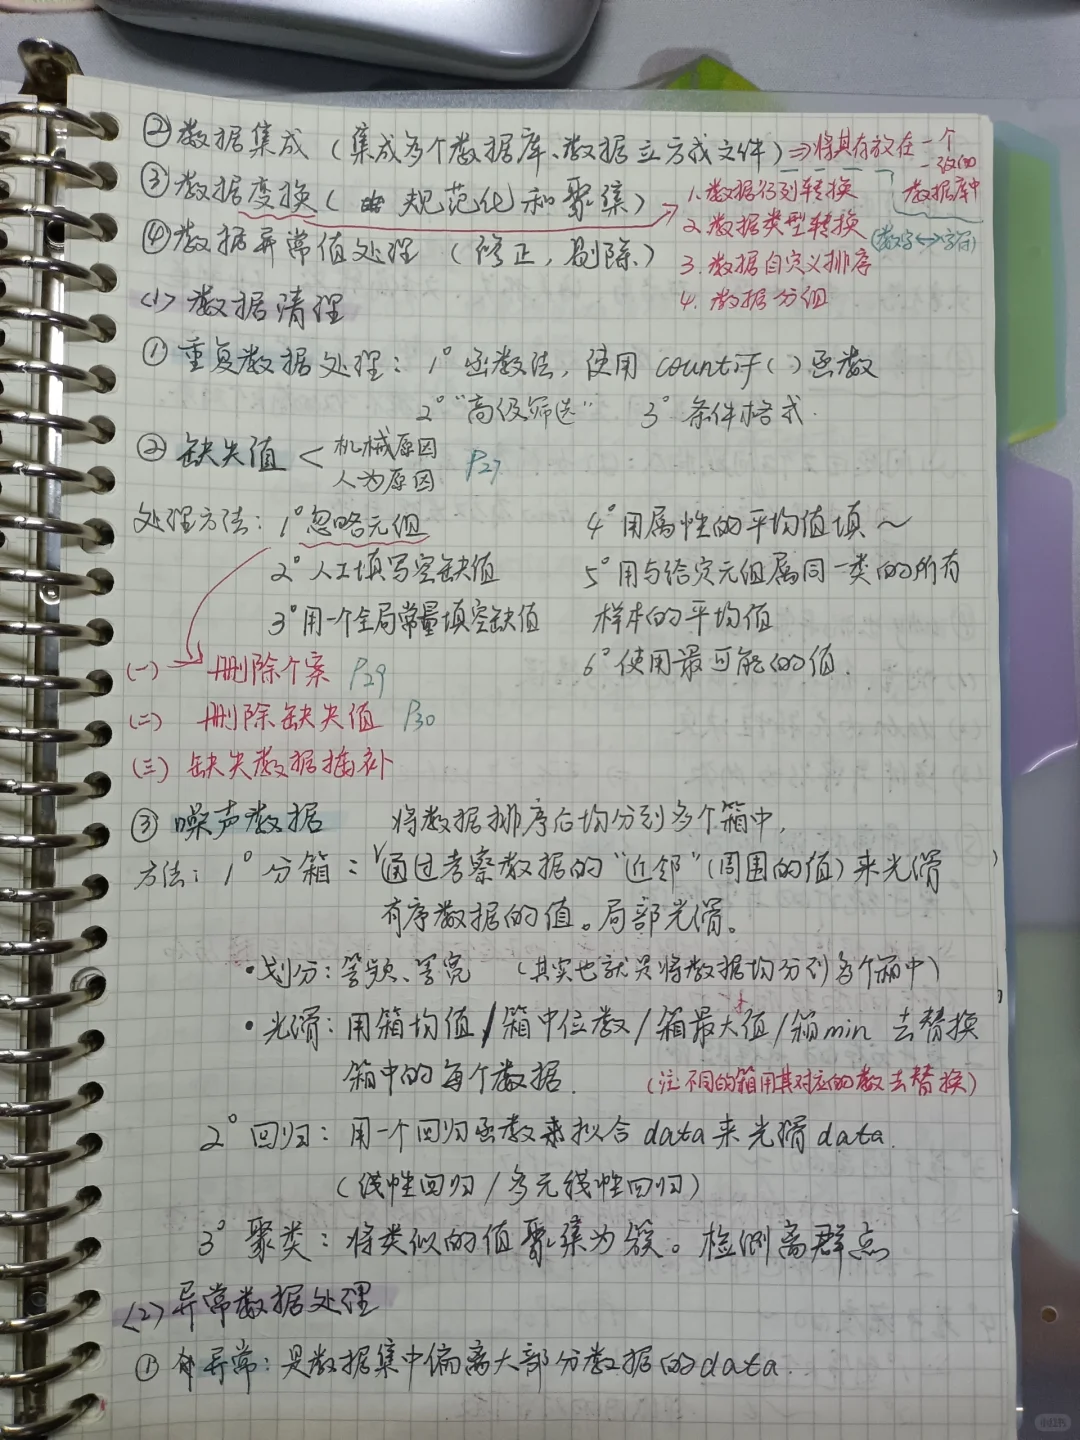 ②数据集成(集成多个数据库、数据立方或文件)⇒将其存放在一个
一致的
数据库中
③数据变换(由 规范化和聚集)
1.数据行列转换
2.数据类型转换(数字↔字符)
3.数据自定义排序
4.数据分组
④数据异常值处理(修正,剔除)
(1)数据清理
①重复数据处理:1°函数法,使用countif()函数
2°"高级筛选" 3°条件格式.
②缺失值<机械原因
人为原因 P27
处理方法:1°忽略元组
2°人工填写空缺值
3°用一个全局常量填空缺值
4°用属性的平均值填~
5°用与给定元组属同一类的所有
样本的平均值
6°使用最可能的值.
(一)删除个案 P29
(二)删除缺失值 P30
(三)缺失数据插补
③噪声数据 将数据排序后均分到多个箱中,
方法:1°分箱:通过考察数据的"近邻"(周围的值)来光滑
有序数据的值。局部光滑。
·划分:等频、等宽 (其实也就是将数据均分到多个箱中)
·光滑:用箱均值/箱中位数/箱最大值/箱min 去替换
箱中的每个数据. (注不同的箱用其对应的数去替换)
2°回归:用一个回归函数来拟合data来光滑data.
(线性回归/多元线性回归)
3°聚类:将类似的值聚集为簇。检测离群点
(2)异常数据处理
①异常:是数据集中偏离大部分数据的data.
小红书